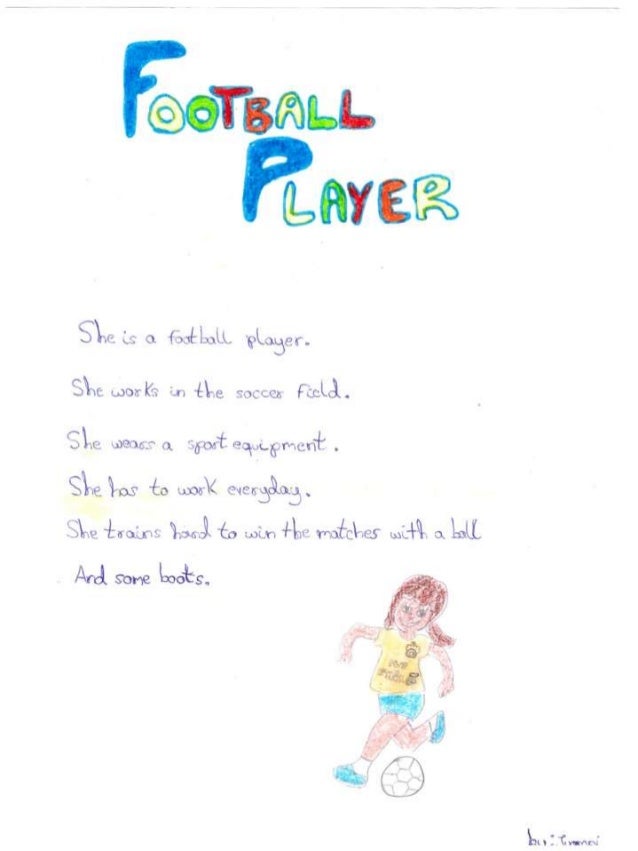 FOOTBALL
PLAYER
She is a football player.
She works in the soccer field.
She wears a sport equipment.
She has to work everyday.
She trains hard to win the matches with a ball
And some boots.
by: